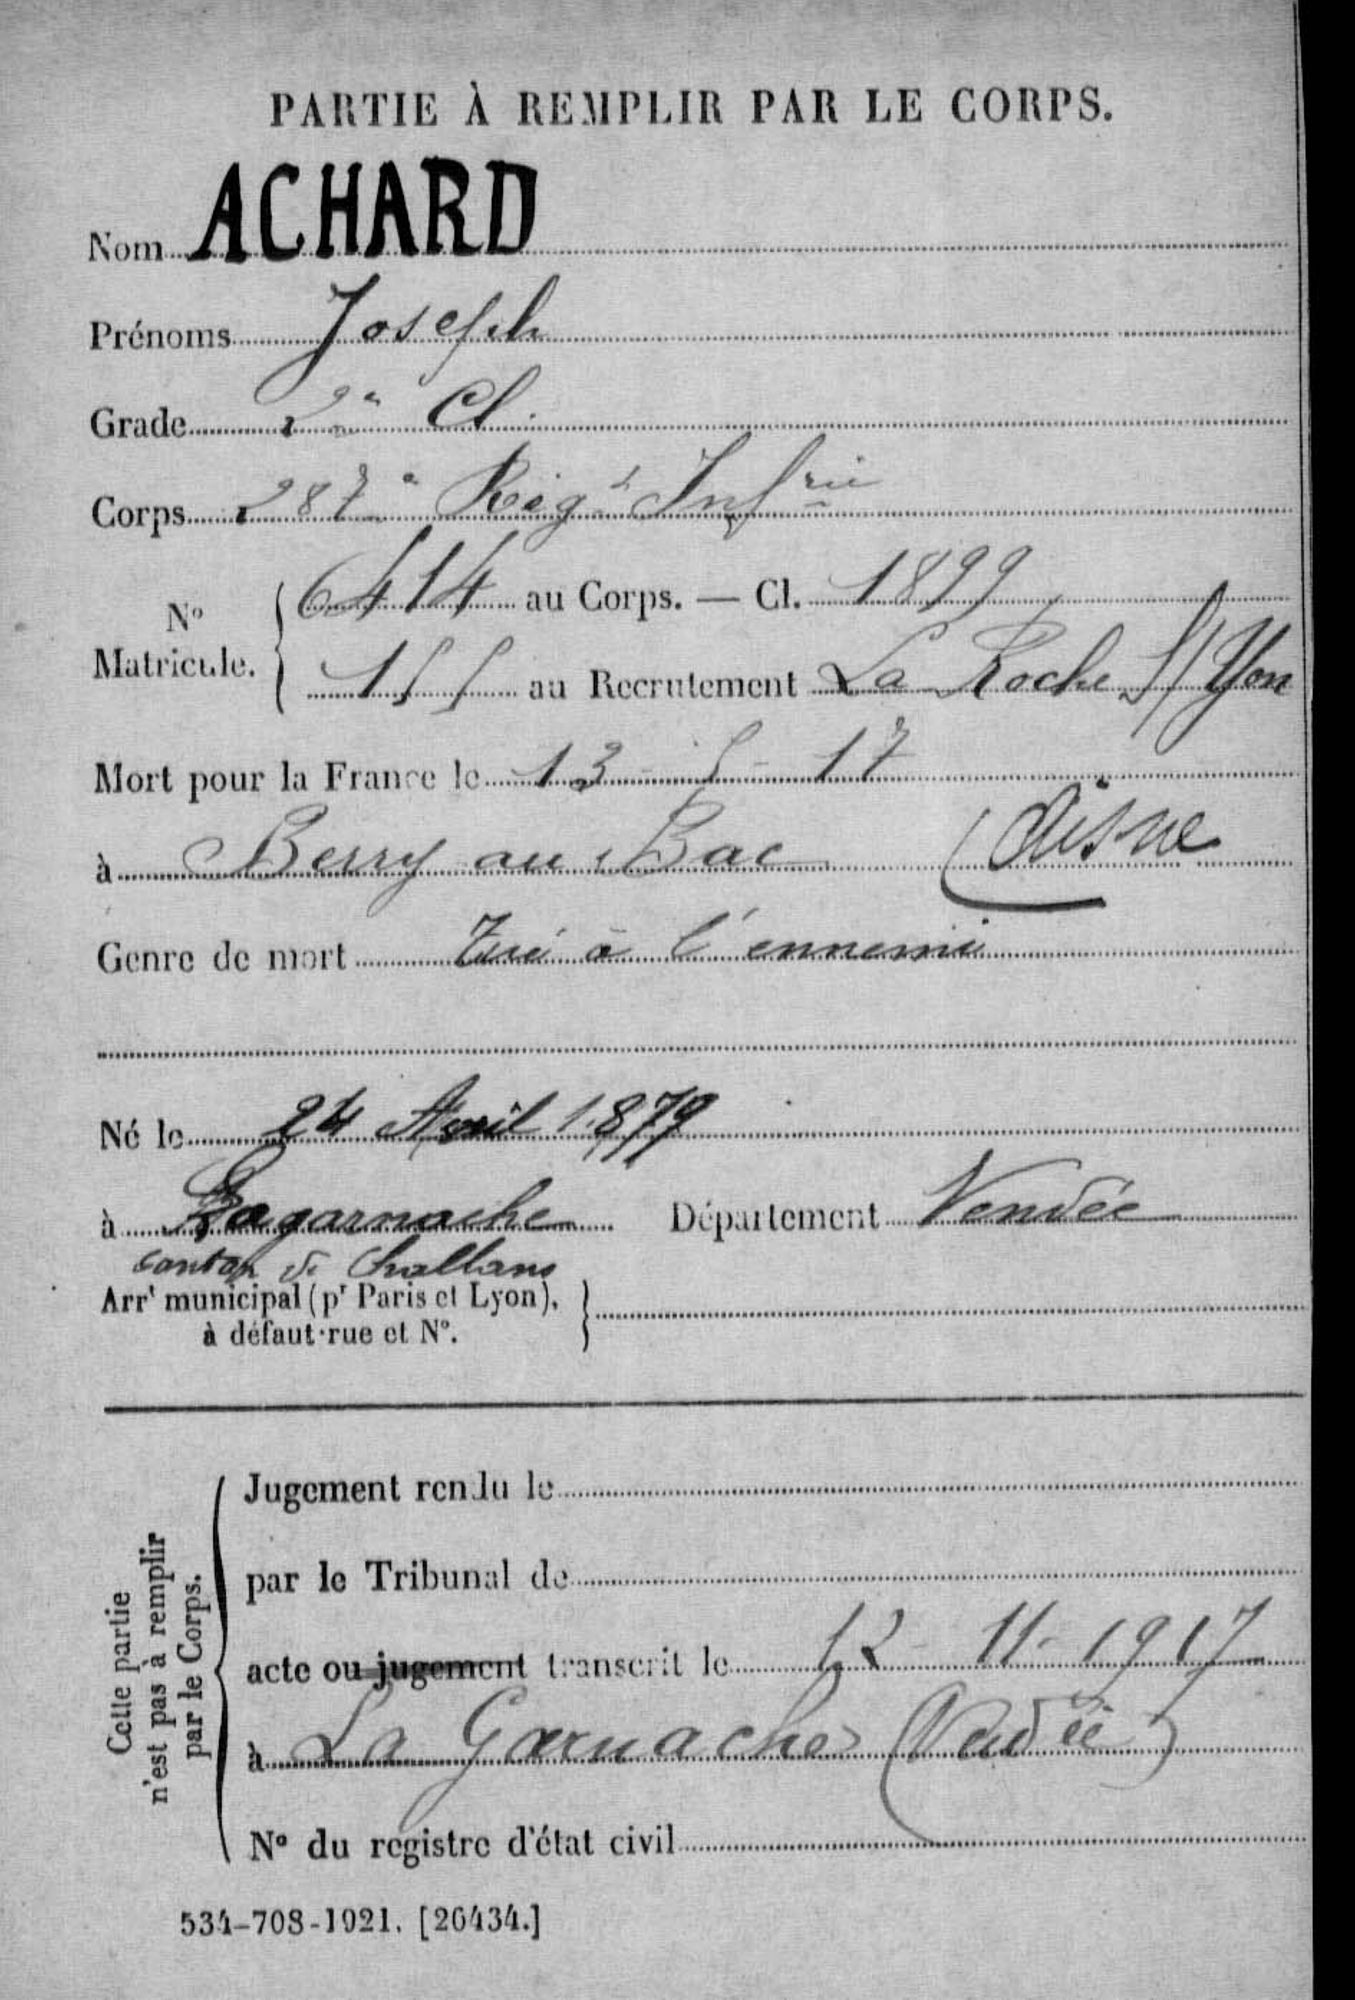 PARTIE À REMPLIR PAR LE CORPS.
Nom ACHARD
Prénoms Joseph
Grade 2e Cl.
Corps 287e Régt Infrie
No Matricule. 6414 au Corps. — Cl. 1899
155 au Recrutement La Roche S/ Yon
Mort pour la France le 13 - 5 - 17
à Berry au Bac (Aisne
Genre de mort Tué à l'ennemi
Né le 24 Avril 1879
à Lagarnache Département Vendée
canton de Challans
Arrt municipal (pr Paris et Lyon),
à défaut rue et No.
Cette partie
n'est pas à remplir
par le Corps.
Jugement rendu le
par le Tribunal de
acte ou jugement transcrit le 12 - 11 - 1917
à La Garnache (Vendée)
No du registre d'état civil
534-708-1921. [26434.]